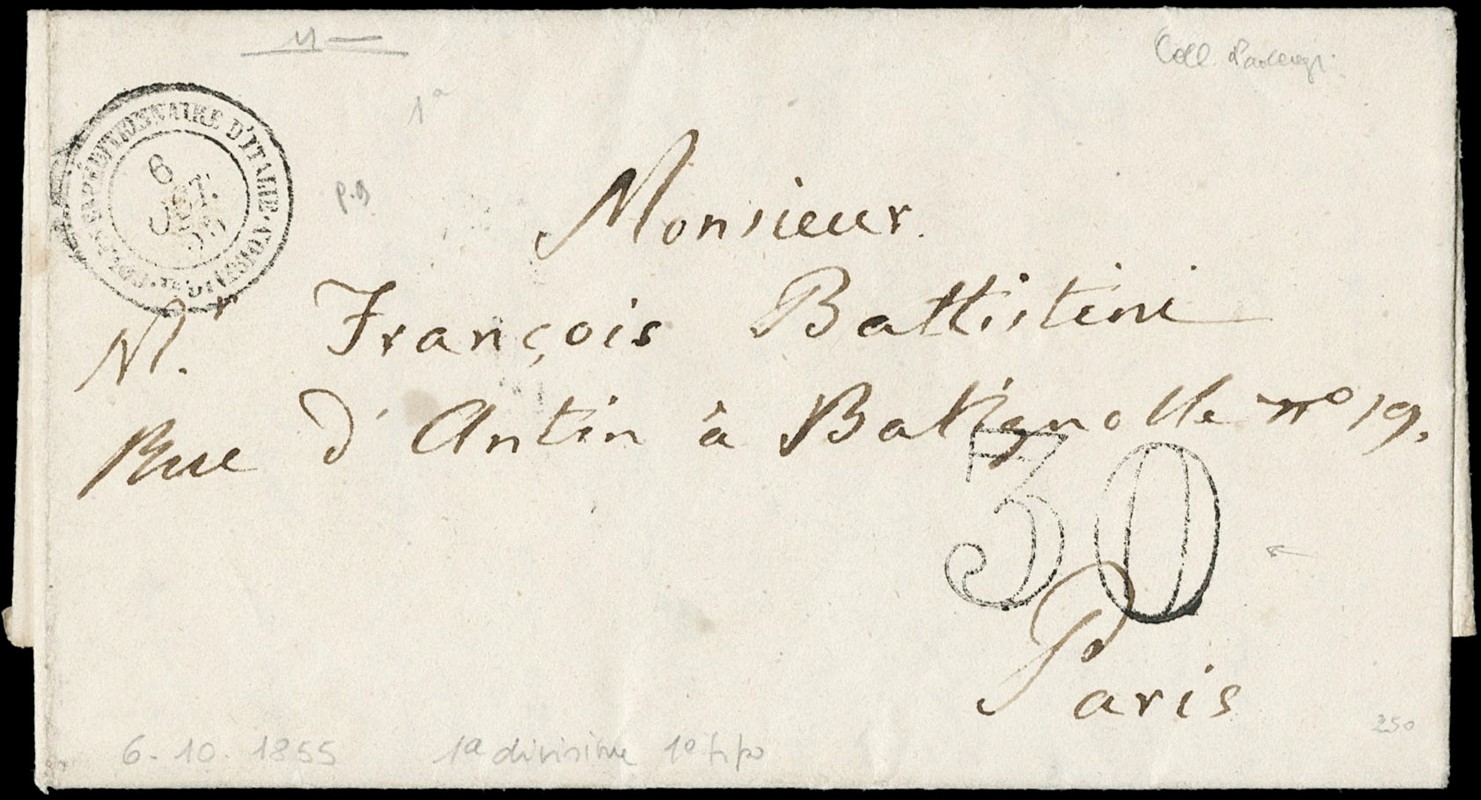 Coll.
1ª
EXPÉDITIONNAIRE D'ITALIE
6
OCT.
55
P.D
Monsieur.
Mr. François Battistini
Rue d'Antin à Batignolle nº 19.
30
Paris
250
6.10.1855 1ª divisione 1º tipo